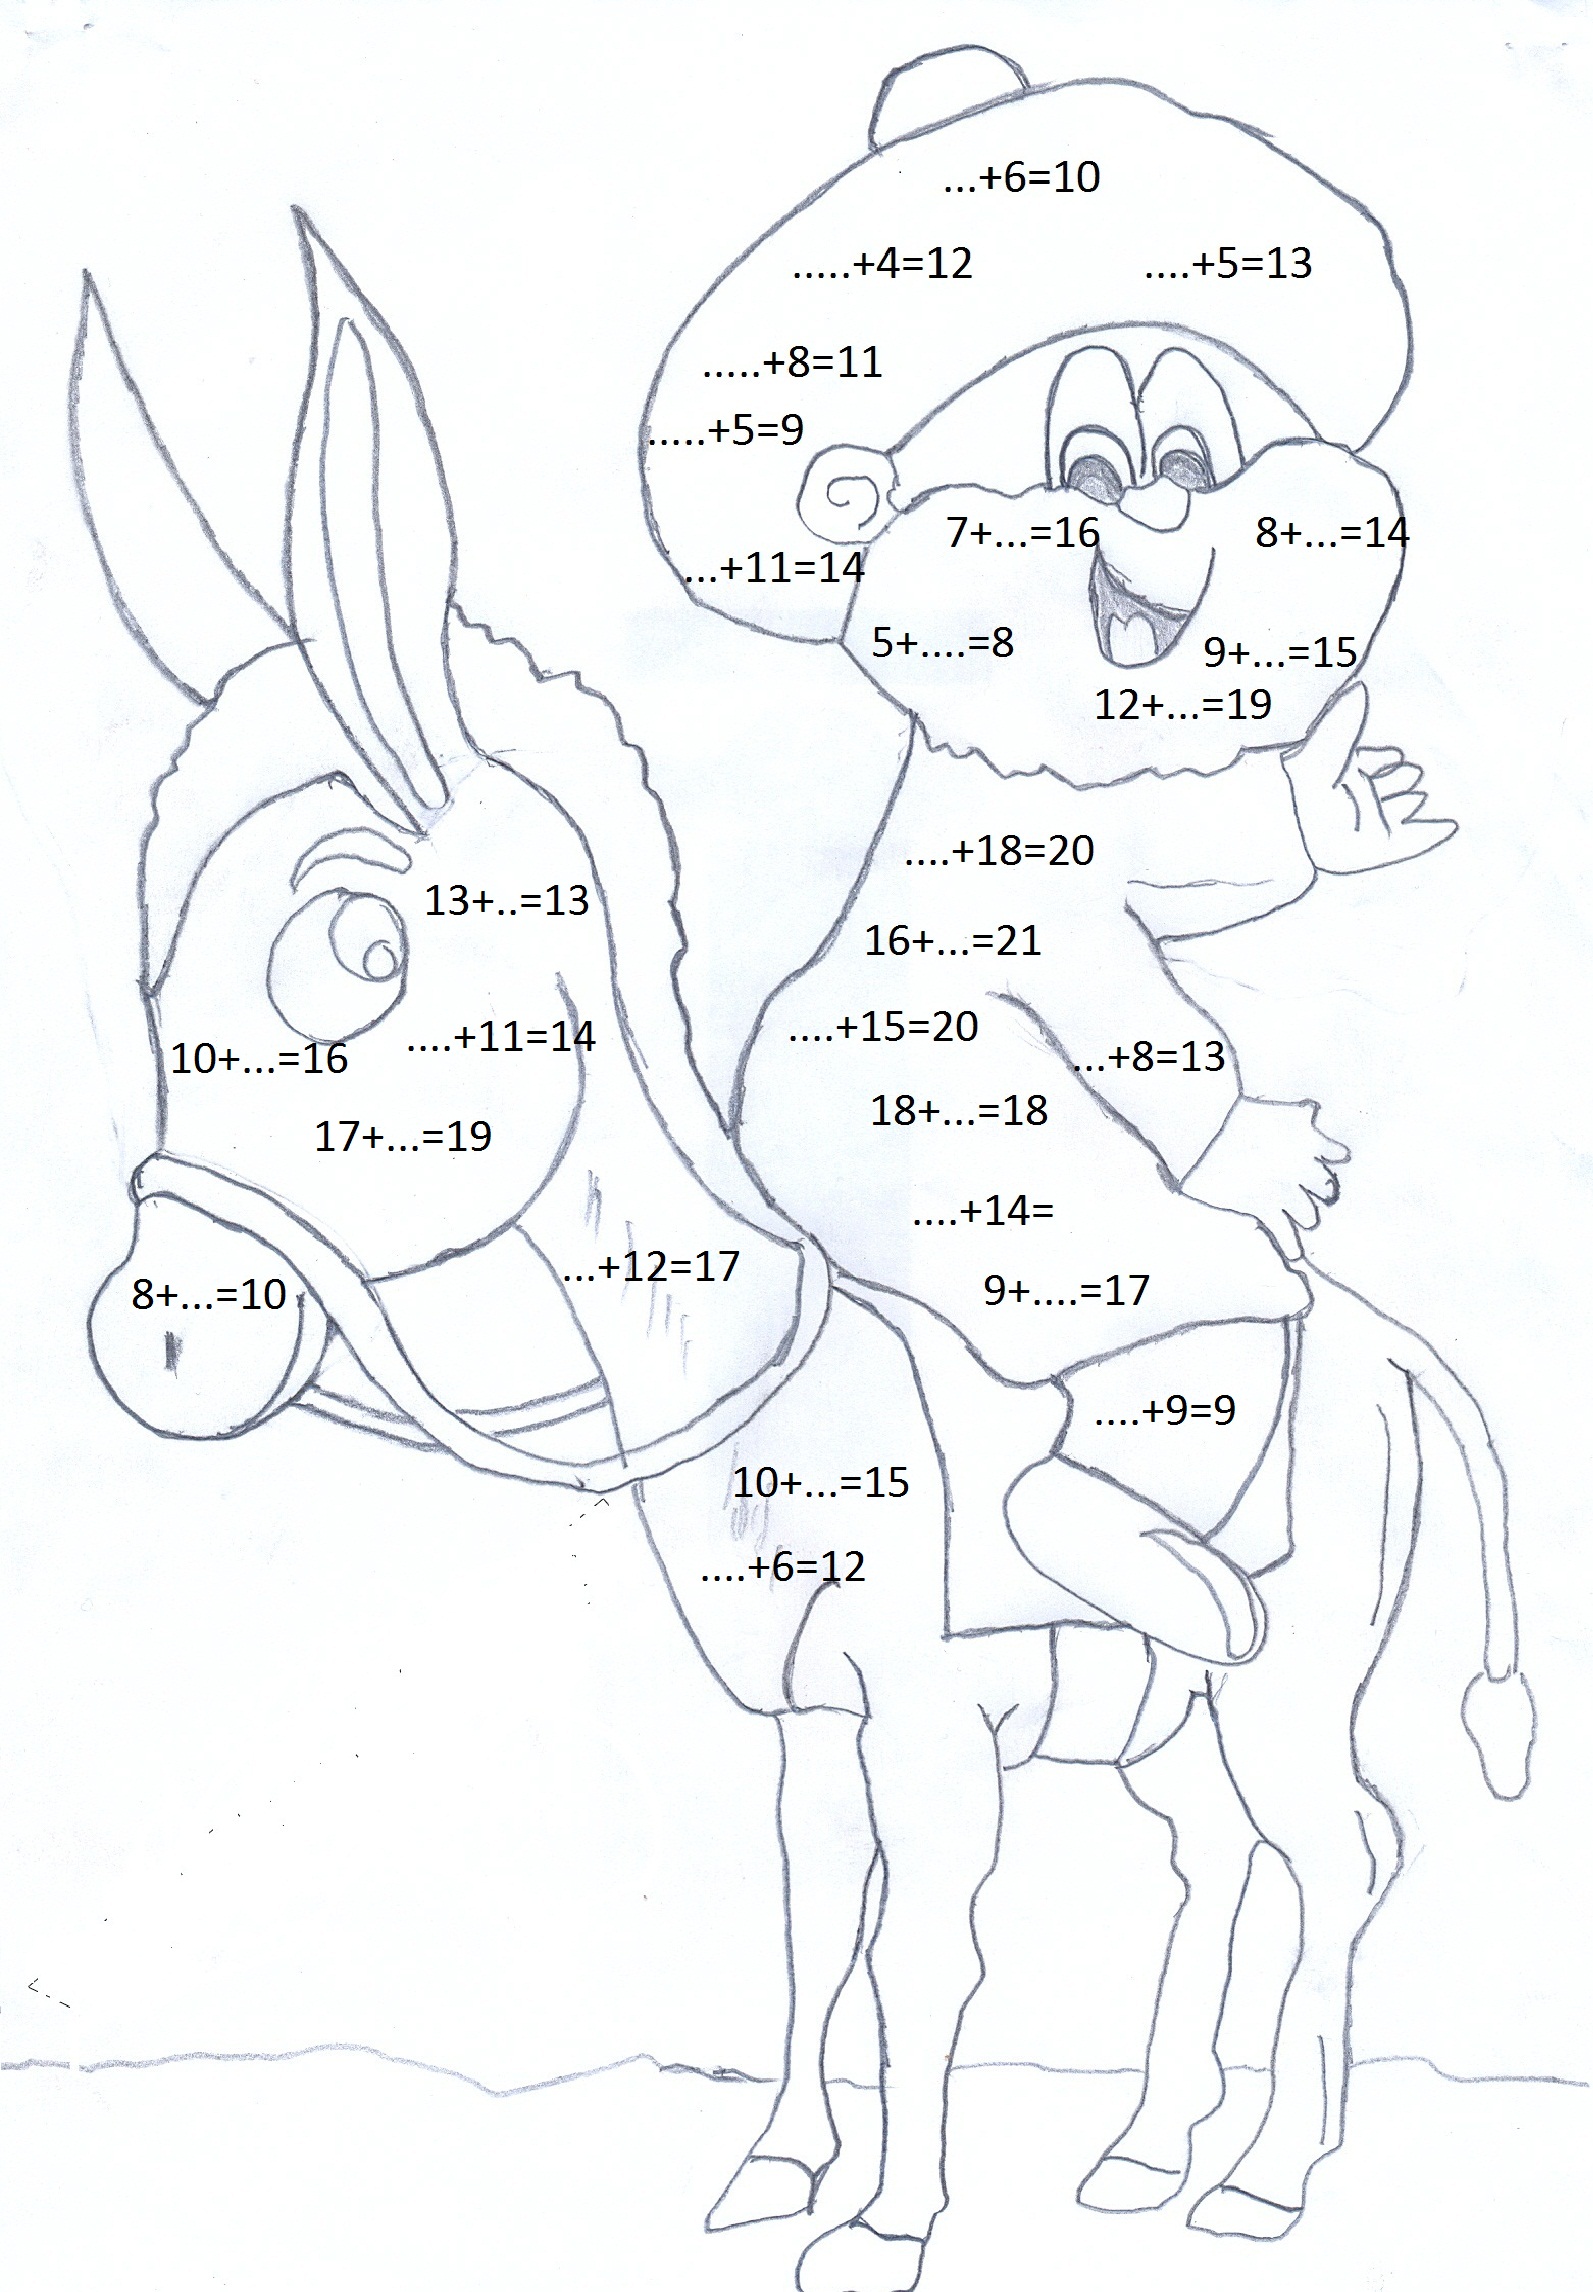 ...+6=10
.....+4=12
....+5=13
.....+8=11
.....+5=9
...+11=14
7+...=16
8+...=14
5+....=8
9+...=15
12+...=19
....+18=20
16+...=21
....+15=20
...+8=13
18+...=18
....+14=
9+....=17
....+9=9
13+..=13
10+...=16
....+11=14
17+...=19
8+...=10
...+12=17
10+...=15
....+6=12